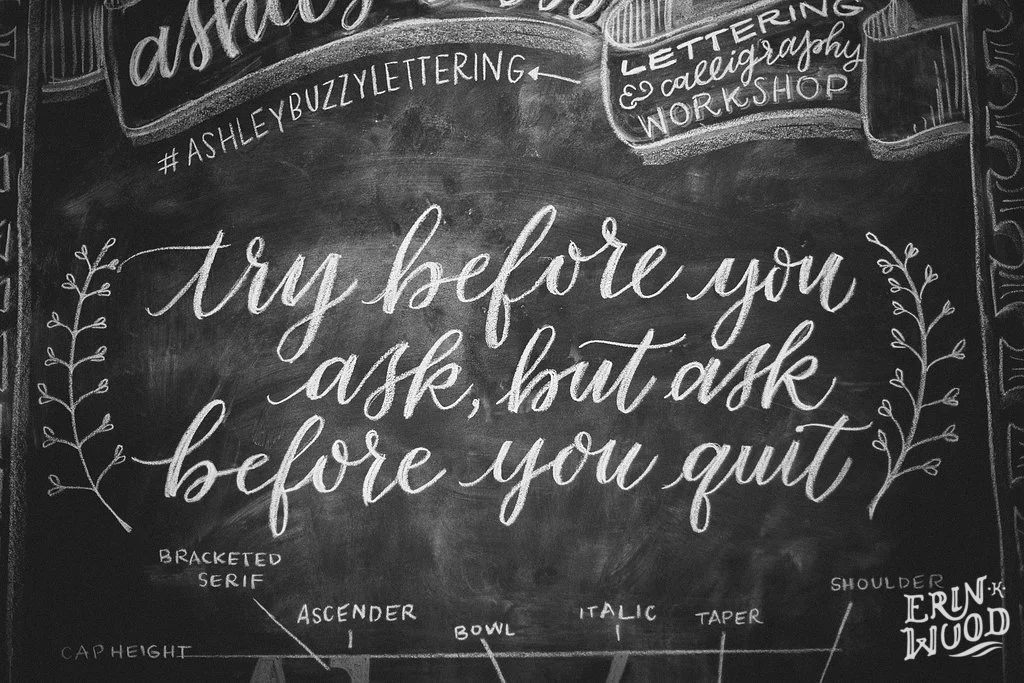 LETTERING
& calligraphy
WORKSHOP
#ASHLEYBUZZYLETTERING
try before you
ask, but ask
before you quit
BRACKETED
SERIF
ASCENDER
BOWL
ITALIC
TAPER
SHOULDER
CAP HEIGHT
ERIN·K·
WOOD